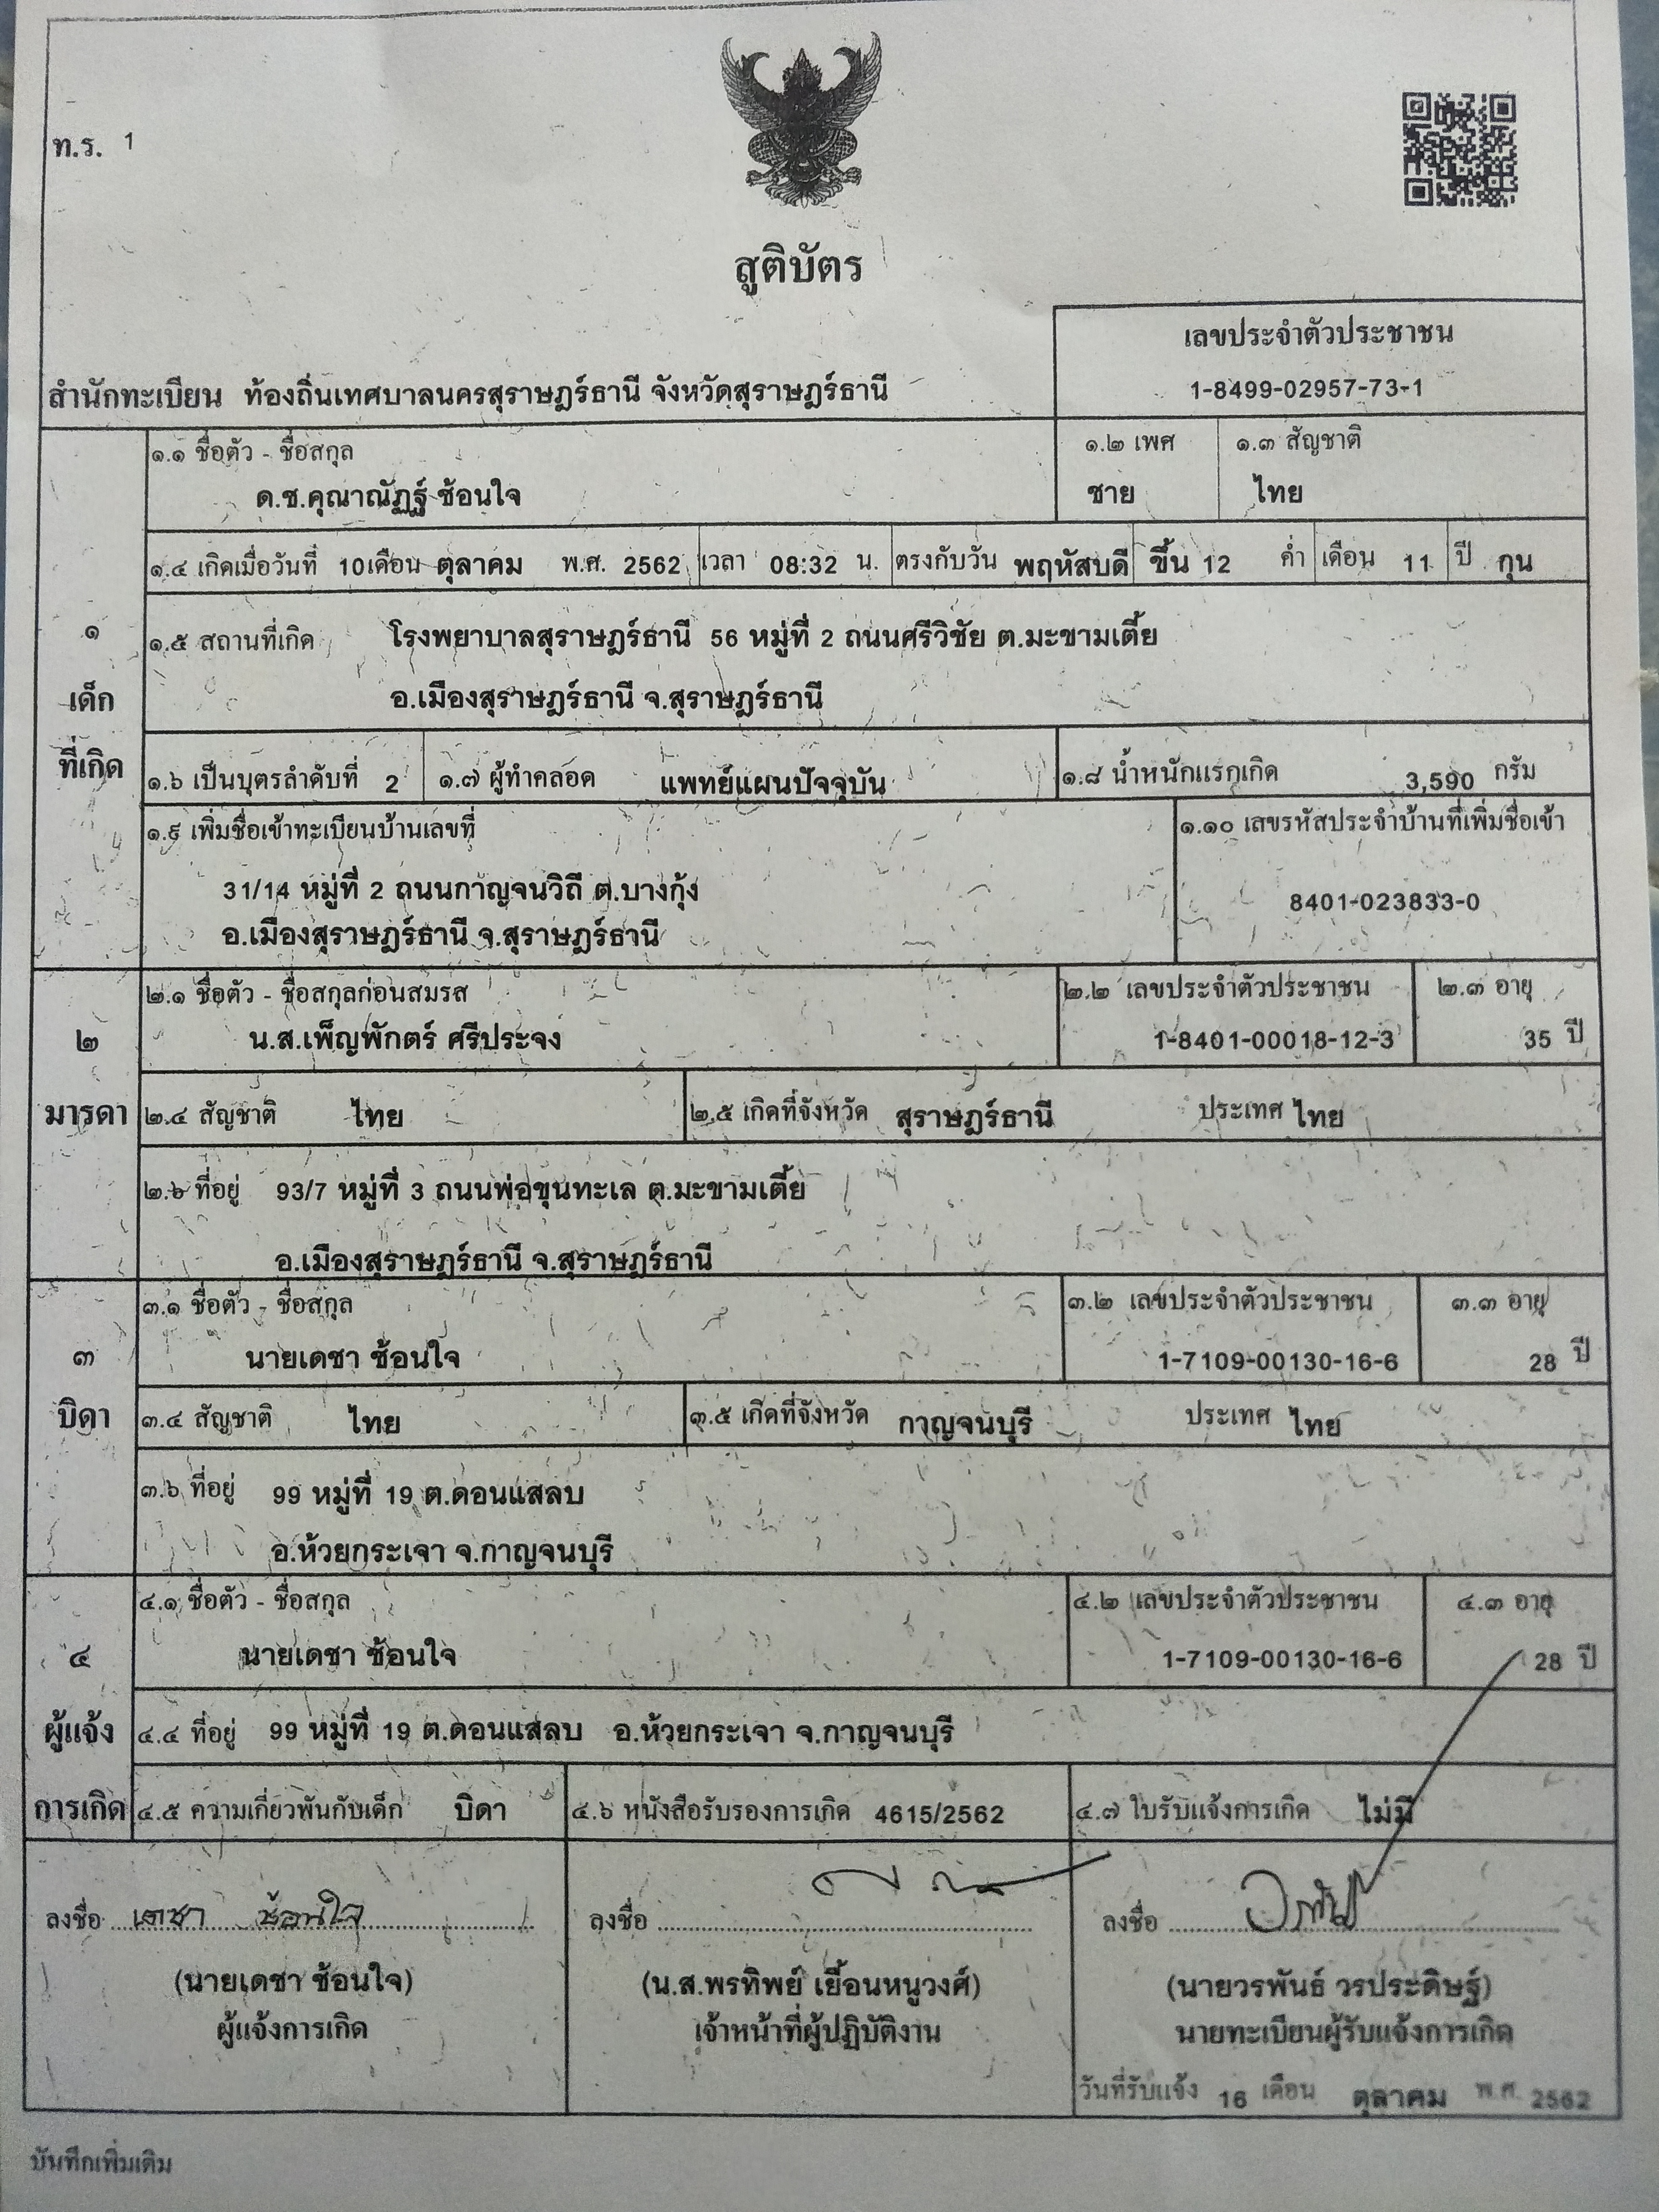 ท.ร. 1
สูติบัตร
เลขประจำตัวประชาชน
สำนักทะเบียน ท้องถิ่นเทศบาลนครสุราษฎร์ธานี จังหวัดสุราษฎร์ธานี
1-8499-02957-73-1
๑
เด็ก
ที่เกิด
๑.๑ ชื่อตัว - ชื่อสกุล
ด.ช.คุณาณัฏฐ์ ซ้อนใจ
๑.๒ เพศ
ชาย
๑.๓ สัญชาติ
ไทย
๑.๔ เกิดเมื่อวันที่ 10 เดือน ตุลาคม พ.ศ. 2562 เวลา 08:32 น. ตรงกับวัน พฤหัสบดี ขึ้น 12 ค่ำ เดือน 11 ปี กุน
๑.๕ สถานที่เกิด โรงพยาบาลสุราษฎร์ธานี 56 หมู่ที่ 2 ถนนศรีวิชัย ต.มะขามเตี้ย
อ.เมืองสุราษฎร์ธานี จ.สุราษฎร์ธานี
๑.๖ เป็นบุตรลำดับที่ 2 ๑.๗ ผู้ทำคลอด แพทย์แผนปัจจุบัน ๑.๘ น้ำหนักแรกเกิด 3,590 กรัม
๑.๙ เพิ่มชื่อเข้าทะเบียนบ้านเลขที่
31/14 หมู่ที่ 2 ถนนกาญจนวิถี ต.บางกุ้ง
อ.เมืองสุราษฎร์ธานี จ.สุราษฎร์ธานี
๑.๑๐ เลขรหัสประจำบ้านที่เพิ่มชื่อเข้า
8401-023833-0
๒
มารดา
๒.๑ ชื่อตัว - ชื่อสกุลก่อนสมรส
น.ส.เพ็ญพักตร์ ศรีประจง
๒.๒ เลขประจำตัวประชาชน
1-8401-00018-12-3
๒.๓ อายุ
35 ปี
๒.๔ สัญชาติ ไทย ๒.๕ เกิดที่จังหวัด สุราษฎร์ธานี ประเทศ ไทย
๒.๖ ที่อยู่ 93/7 หมู่ที่ 3 ถนนพ่อขุนทะเล ต.มะขามเตี้ย
อ.เมืองสุราษฎร์ธานี จ.สุราษฎร์ธานี
๓
บิดา
๓.๑ ชื่อตัว - ชื่อสกุล
นายเดชา ซ้อนใจ
๓.๒ เลขประจำตัวประชาชน
1-7109-00130-16-6
๓.๓ อายุ
28 ปี
๓.๔ สัญชาติ ไทย ๓.๕ เกิดที่จังหวัด กาญจนบุรี ประเทศ ไทย
๓.๖ ที่อยู่ 99 หมู่ที่ 19 ต.ดอนแสลบ
อ.ห้วยกระเจา จ.กาญจนบุรี
๔
ผู้แจ้ง
การเกิด
๔.๑ ชื่อตัว - ชื่อสกุล
นายเดชา ซ้อนใจ
๔.๒ เลขประจำตัวประชาชน
1-7109-00130-16-6
๔.๓ อายุ
28 ปี
๔.๔ ที่อยู่ 99 หมู่ที่ 19 ต.ดอนแสลบ อ.ห้วยกระเจา จ.กาญจนบุรี
๔.๕ ความเกี่ยวพันกับเด็ก บิดา ๔.๖ หนังสือรับรองการเกิด 4615/2562 ๔.๗ ใบรับแจ้งการเกิด ไม่มี
ลงชื่อ เดชา ซ้อนใจ
(นายเดชา ซ้อนใจ)
ผู้แจ้งการเกิด
ลงชื่อ
(น.ส.พรทิพย์ เยื้อนหนูวงศ์)
เจ้าหน้าที่ผู้ปฏิบัติงาน
ลงชื่อ
(นายวรพันธ์ วรประดิษฐ์)
นายทะเบียนผู้รับแจ้งการเกิด
วันที่รับแจ้ง 16 เดือน ตุลาคม พ.ศ. 2562
บันทึกเพิ่มเติม